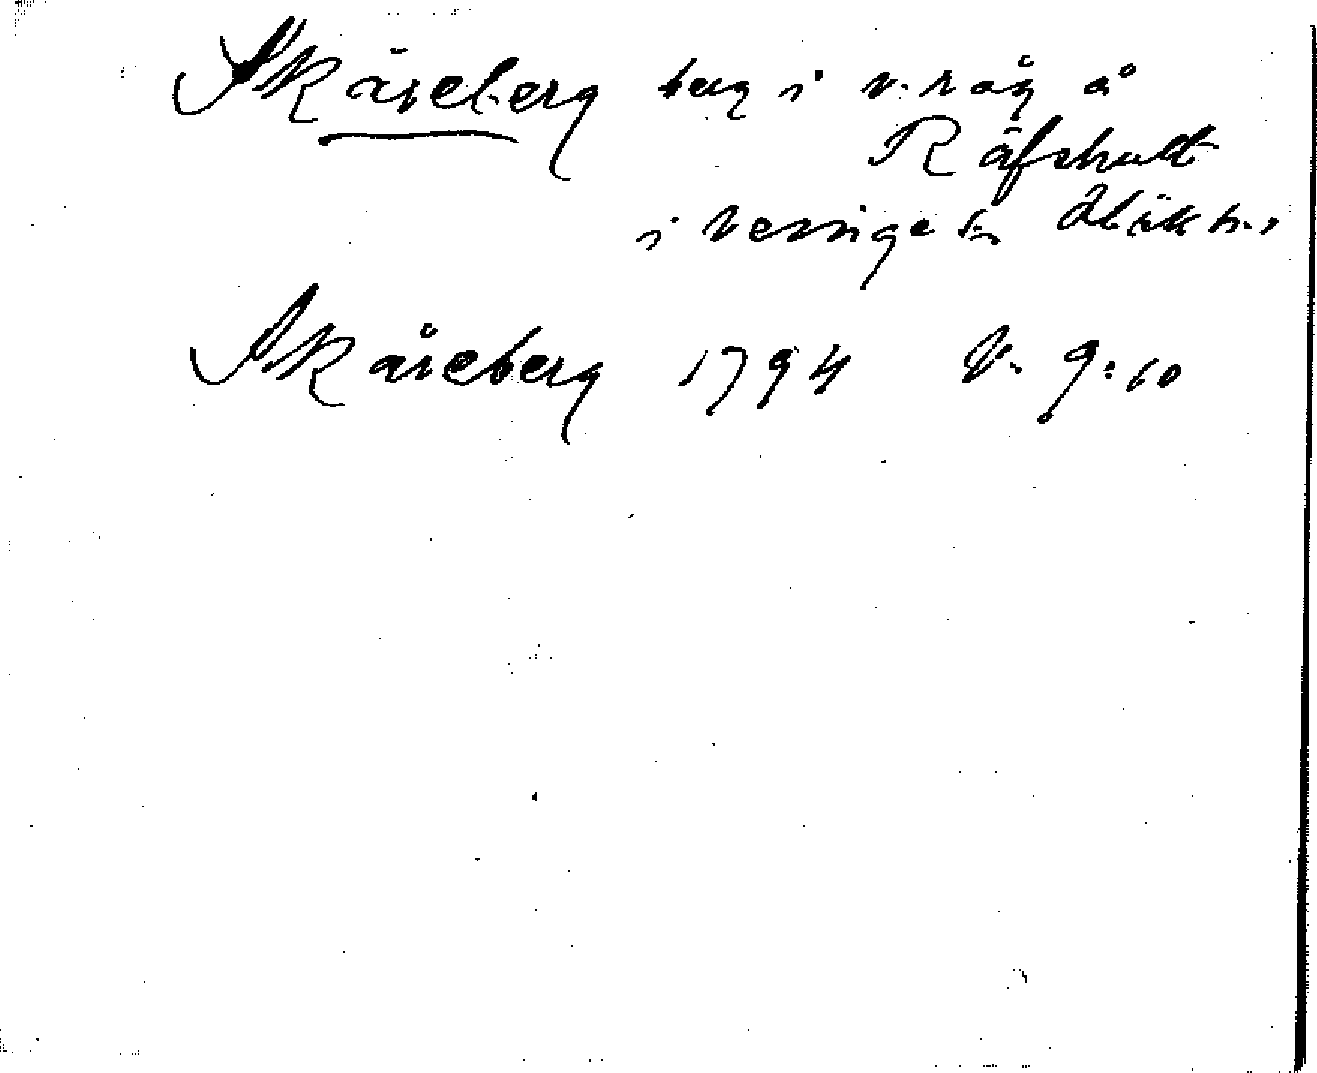 Skåreberg berg i v. råg å
Räfshult
i Vessige sn Halik h.,
Skåreberg 1794 V. 9:60